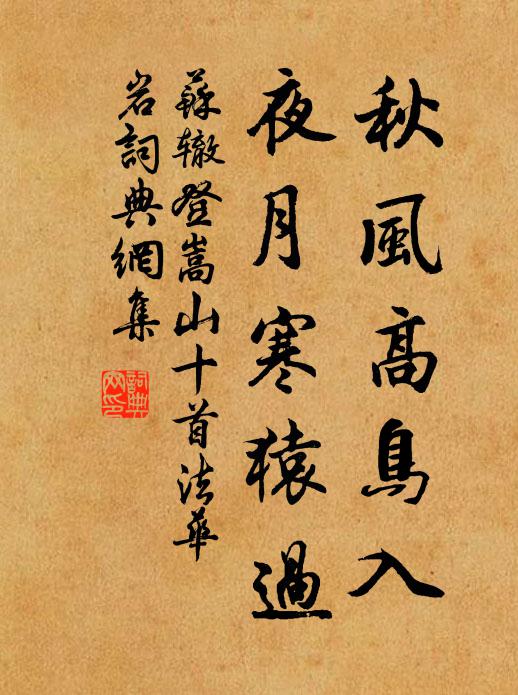 秋風高鳥入
夜月寒猿過
蘇轍登嵩山十首法華
岩詞典網集
詞典
网印